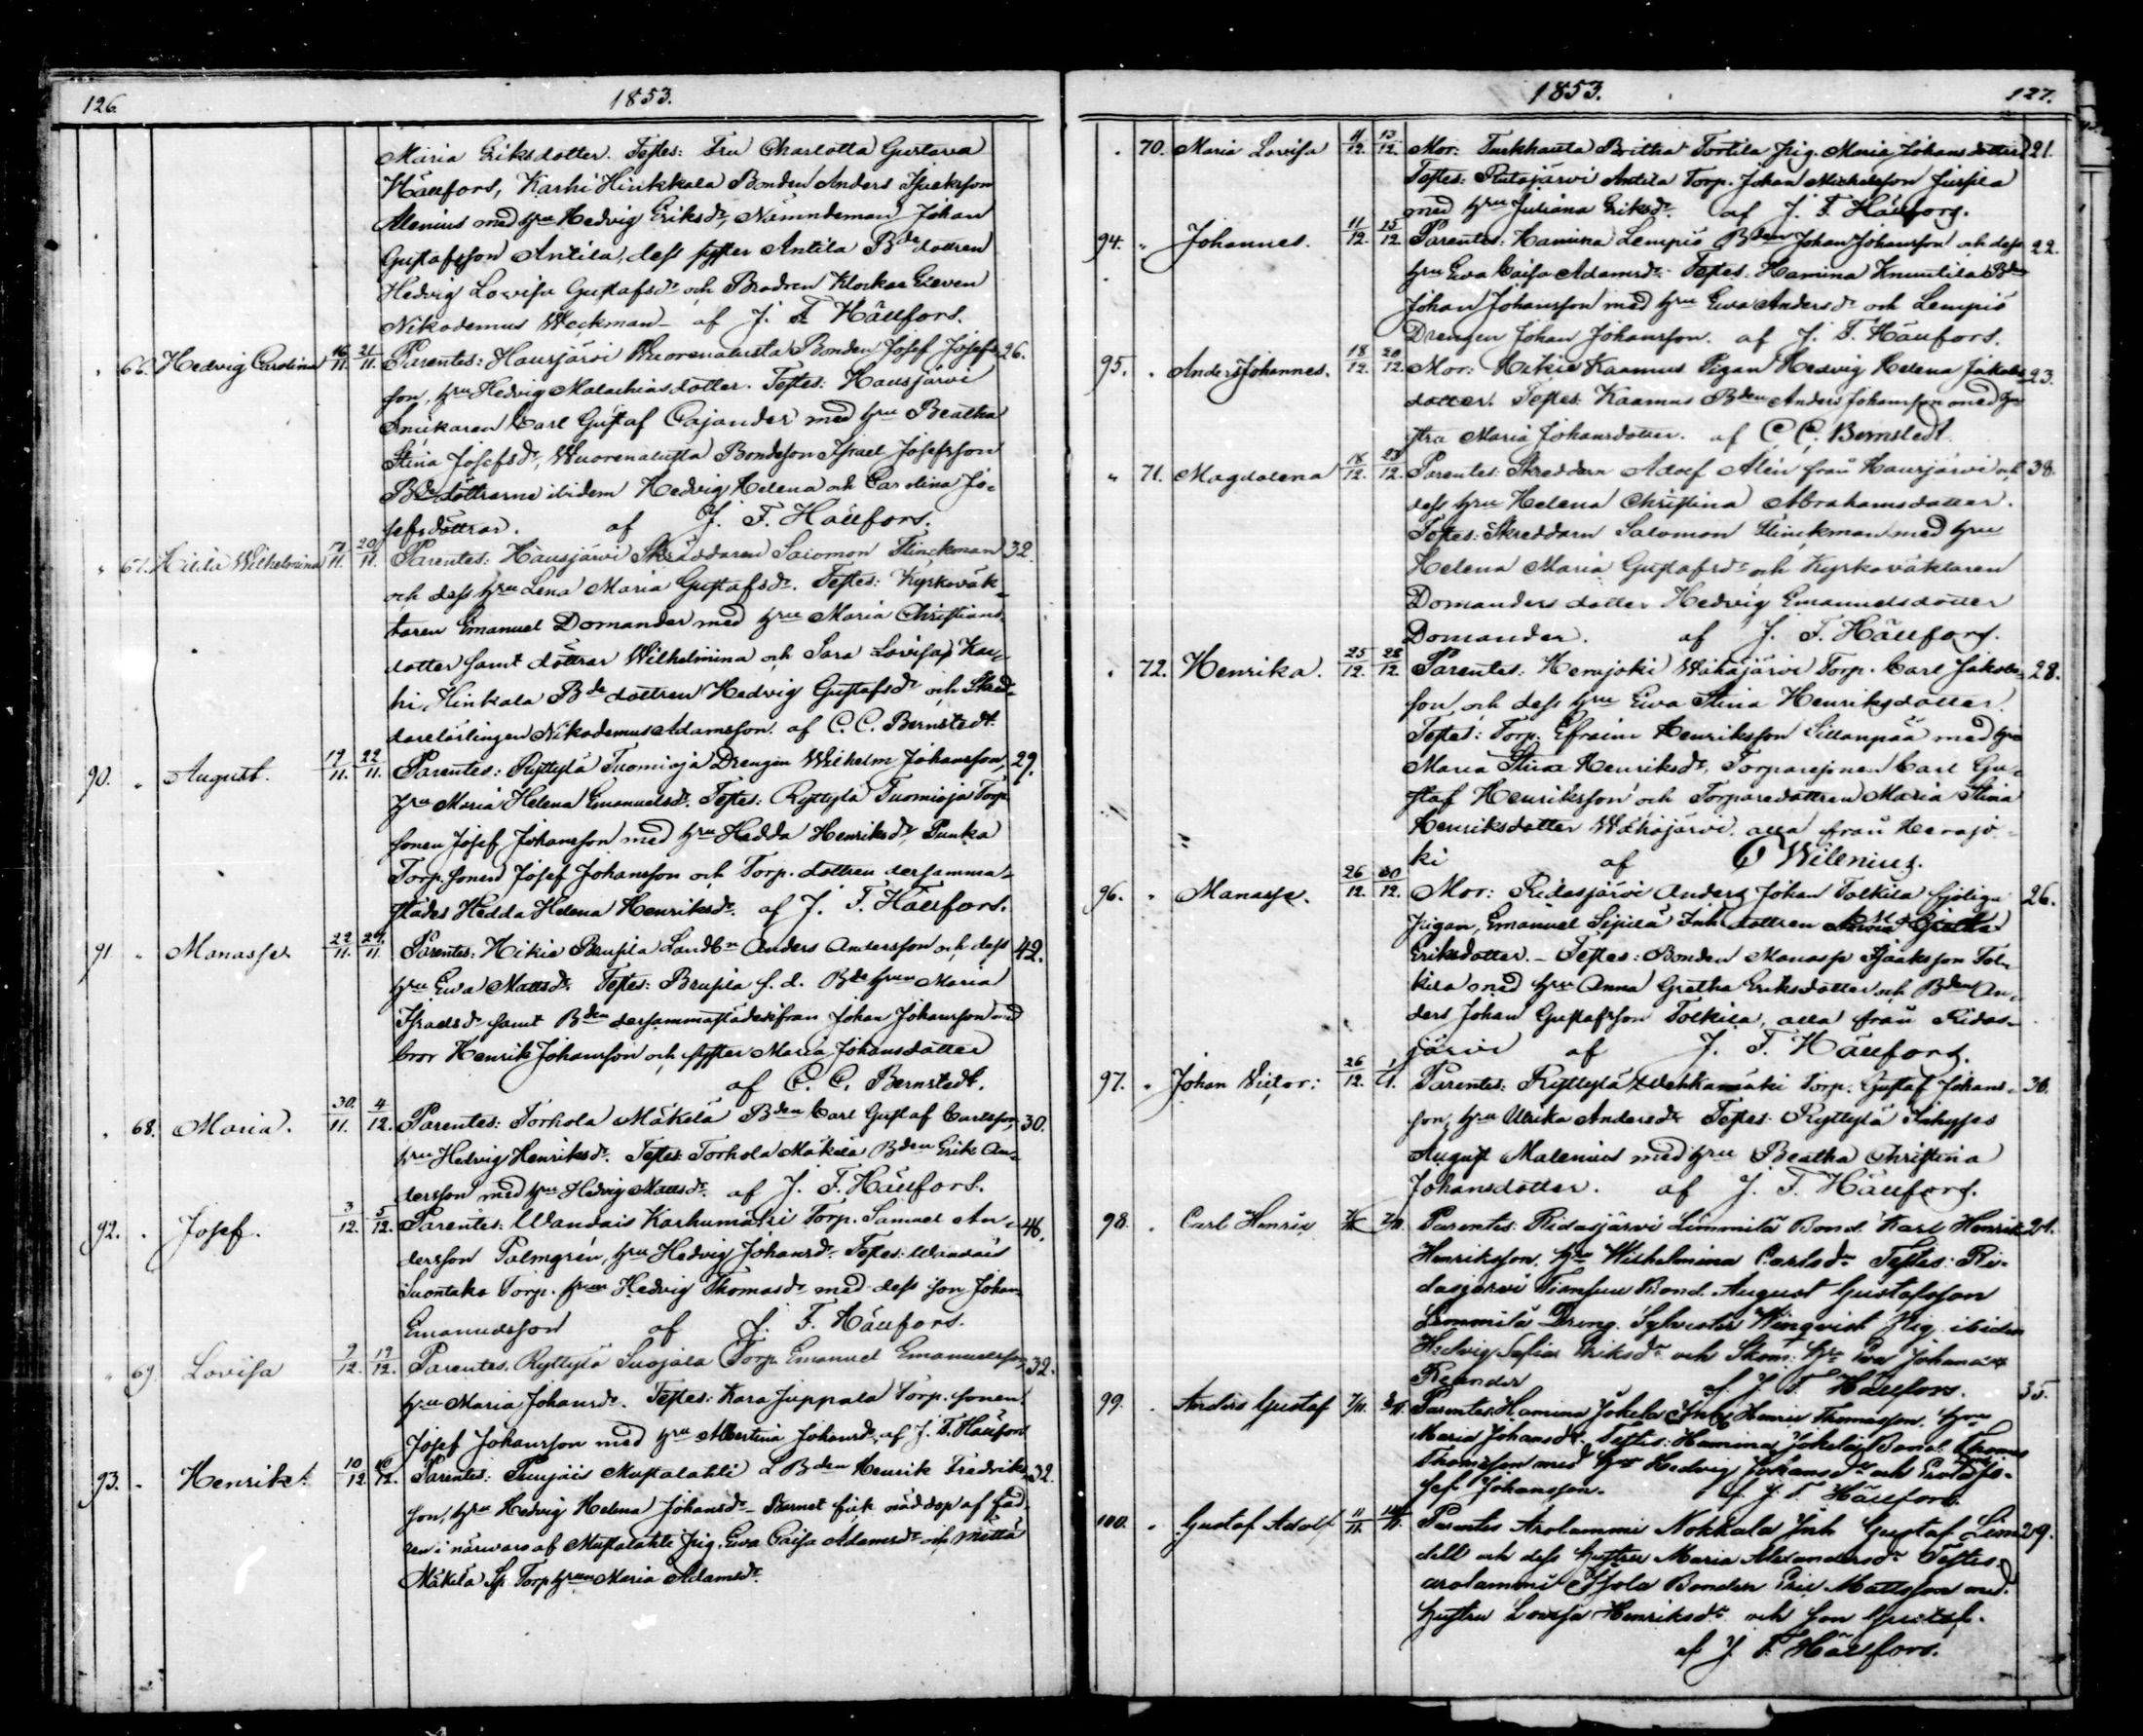 126. 1853.
Maria Eriksdotter. Testes: Fru Charlotta Gustava
Hällfors, Karhi Hinkkala Bonden Anders Isacksson
Alenius med hru Hedvig Eriksdr, Nämndeman Johan
Gustafsson Antila, dess syster Antila Bde dottren
Hedvig Lovisa Gustafsdr och Brodren Klockar Eleven
Nikodemus Weckman - af J. F. Hällfors.
" 66. Hedvig Carolina 16/11. 21/11. Parentes: Hausjärvi Wuorenalusta Bonden Josef Josefs- 26.
son, hru Hedvig Malachiasdotter. Testes: Hausjärvi
Snickaren Carl Gustaf Cajander med hru Beatha
Stina Josefsdr, Wuorenalusta Bondeson Israel Josefsson
Bde döttrarne ibidem Hedvig Helena och Carolina Jo-
sefsdöttrar. af J. F. Hällfors.
" 67. Hilda Wilhelmina 17/11. 20/11. Parentes: Hausjärvi Skräddaren Salomon Flinckman 32.
och dess hru Lena Maria Gustafsdr. Testes: Kyrkoväk-
taren Emanuel Domander med hru Maria Christians
dotter samt döttrar Wilhelmina och Sara Lovisa, Kar-
hi Hinkala Bde dottren Hedvig Gustafsdr och Skräd-
darelärlingen Nikodemus Adamsson. af C. C. Bernstedt.
90. " August. 19/11. 22/11. Parentes: Ryttylä Tuomioja Drengen Wilhelm Johansson, 29.
hru Maria Helena Emanuelsdr. Testes: Ryttylä Tuomioja Torp.
sonen Josef Johansson med hru Hedda Henriksdr, Punka
Torp. sonen Josef Johansson och Torp. dottren dersamma-
städes Hedda Helena Henriksdr. af J. F. Hällfors.
91. " Manasse. 22/11. 27/11. Parentes: Hikie Prupila Landbn Anders Andersson och dess 42.
hru Eva Mattsdr. Testes: Prupila f. d. Bde hrun Maria
Israelsdr samt Bden dersammastädesifrån Johan Johansson med
bror Henrik Johansson och syster Maria Johansdotter
af C. C. Bernstedt.
" 68. Maria. 30/11. 4/12. Parentes: Torhola Mäkelä Bden Carl Gustaf Carlsson, 30.
hru Hedvig Henriksdr. Testes: Torhola Mäkelä Bden Erik An-
dersson med hru Hedvig Mattsdr. af J. F. Hällfors.
92. " Josef. 3/12. 5/12. Parentes: Wandais Karhumäki Torp. Samuel An- 46.
dersson Palmgrén, hru Hedvig Johansdr. Testes: Wandais
Suontaka Torp. hrun Hedvig Thomasdr med dess son Johan
Emanuelsson af J. F. Hällfors.
" 69. Lovisa 9/12. 19/12. Parentes. Ryttylä Suojala Torp. Emanuel Emanuelsson 32.
hru Maria Johansdr. Testes: Kara Juppala Torp. sonen
Josef Johansson med hru Albertina Johansdr. af J. F. Hällfors
93. " Henrik. 10/12. 10/12. Parentes: Mustalahti L Bden Henrik Fredriks- 32.
son, hru Hedvig Helena Johansdr. Barnet fick nöddop af fad-
ren i närvaro af Mustalahti Pig. Eva Caisa Adamsdr och
Mäkelä Torp hrun Maria Adamsdr.
1853. 127.
" 70. Maria Lovisa 11/12. 13/12. Mor: Turkhauta Britha Tortila Pig. Maria Johansdotter 21.
Testes: Rutajärvi Antila Torp. Johan Michelsson
med hru Juliana Eriksdr. af J. F. Hällfors.
94. " Johannes. 11/12. 15/12. Parentes: Hamina Lempis Bden Johan Johansson och dess 22.
hru Eva Caisa Adamsdr. Testes: Hamina Knuutila Bden
Johan Johansson med hru Eva Andersdr och Lempis
Drengen Johan Johansson. af J. F. Hällfors.
95. " Anders Johannes. 18/12. 20/12. Mor: Hikie Kaamus Pigan Hedvig Helena Jakobs- 23.
dotter. Testes: Kaamus Bden Anders Johansson med hu-
stru Maria Johansdotter. af C. C. Bernstedt.
" 71. Magdalena 18/12. 23/12. Parentes: Skreddarn Adolf Alén från Hausjärvi och 38.
dess hru Helena Christina Abrahamsdotter.
Testes: Skreddarn Salomon Flinckman med hru
Helena Maria Gustafsdr och Kyrkoväktaren
Domanders dotter Hedvig Emanuelsdotter
Domander. af J. F. Hällfors.
" 72. Henrika. 25/12. 28/12. Parentes: Herajoki Wähäjärvi Torp. Carl Jakobs- 28.
son, och dess hru Eva Stina Henriksdotter.
Testes: Torp. Efraim Henriksson Sillanpää med hru
Maria Stina Henriksdr, Torparesonen Carl Gu-
staf Henriksson och Torparedottren Maria Stina
Henriksdotter Wähäjärvi. alla från Herajo-
ki af Wilenius.
96. " Manasse. 26/12. 30/12. Mor: Ridasjärvi Anders Johan Tolkila
Pigan, Emanuel Sipilä Inh. dottren Gretha 26.
Eriksdotter. - Testes: Bonden Manasse Isaaksson Tol-
kila med hru Anna Gretha Eriksdotter och Bden An-
ders Johan Gustafsson Tolkila, alla från Ridas-
järvi af J. F. Hällfors.
97. " Johan Victor. 26/12. 1/1. Parentes: Ryttylä Torp. Gustaf Johans- 30.
son, hru Ulrika Andersdr Testes: Ryttylä Inhyses
August Malenius med hru Beatha Christina
Johansdotter. af J. F. Hällfors.
98. " Carl Henric Parentes: Ridasjärvi Limmilä Bond. Karl Henrik 21.
Henriksson, hru Wilhelmina Carlsdr Testes: Ri-
dasjärvi Bond. August Gustafsson
Limmilä Dreng. Sylvester Winqvist Pig. ibidem
Hedvig Sofia Eriksdr och hru Eva Johana
af J. F. Hällfors.
99. " Anders Gustaf Parentes: Hamina Jokela Inh. Henric Thomasson, hru 35.
Maria Johansdr. Testes: Hamina Jokela Bond. Thomas
Thomasson med hru Hedvig Johansdr och Jo-
sef Johansson. af J. F. Hällfors.
100. " Gustaf Adolf Parentes Arolammi Nokkala Inh Gustaf Lin- 29.
dell och dess hustru Maria Alexandersdr Testes:
Arolammi Bonden Eric Mattsson med
hustru Lovisa Henriksdr och son Gustaf.
af J. F. Hällfors.